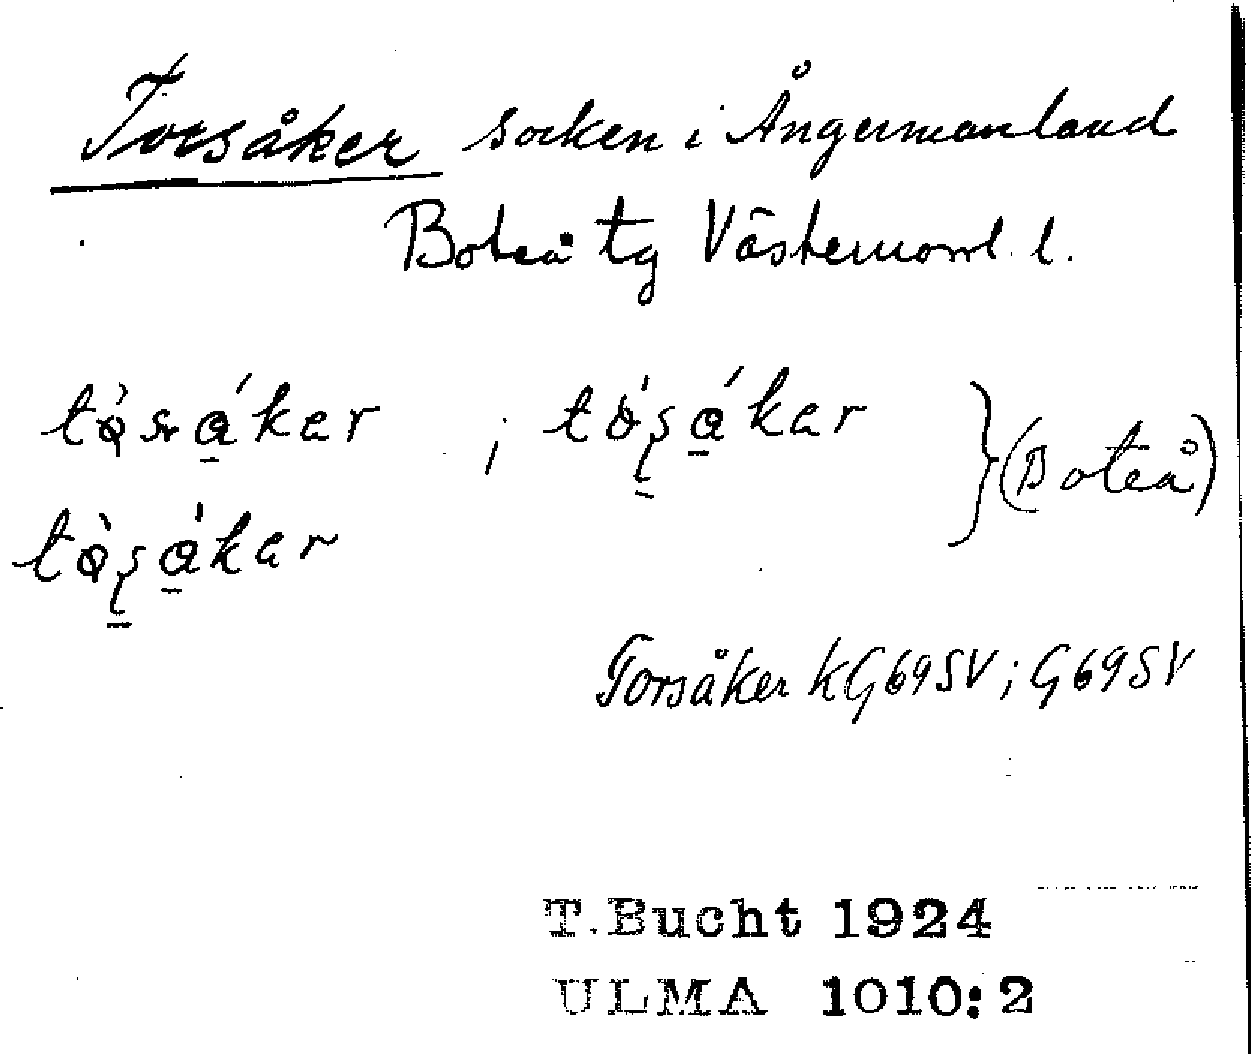 Torsåker socken i Ångermanland
Boteå tg Västernorrl. l.
tòsạ́kar ; tósạ́kar } (Boteå)
tòsạ́kar
Torsåker kG69SV; G69SV
T. Bucht 1924
ULMA 1010:2